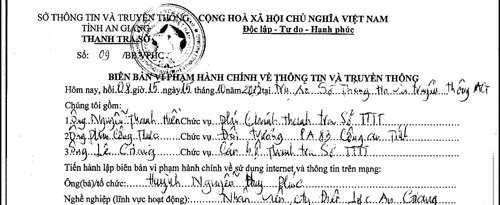 SỞ THÔNG TIN VÀ TRUYỀN THÔNG CỘNG HOÀ XÃ HỘI CHỦ NGHĨA VIỆT NAM
TỈNH AN GIANG Độc lập - Tự do - Hạnh phúc
THANH TRA SỞ
Số: 09 /BB-VPHC
BIÊN BẢN VI PHẠM HÀNH CHÍNH VỀ THÔNG TIN VÀ TRUYỀN THÔNG
Hôm nay, hồi 08 giờ 15 ngày 10 tại Sở Thông tin truyền thông AG
Chúng tôi gồm:
1. Ông Nguyễn Thanh Hiền Chức vụ phó Chánh Thanh tra Sở TTTT
2. Ông Chức vụ Đội trưởng PA83 Công an Tỉnh
3. Ông Lê Chức vụ Cán bộ Thanh tra Sở TTTT
Tiến hành lập biên bản vi phạm hành chính về sử dụng internet và thông tin trên mạng:
Ông(bà)/tổ chức: Huỳnh Nguyễn Huy Phúc
Nghề nghiệp (lĩnh vực hoạt động): Nhân viên cty Điện lực An Giang